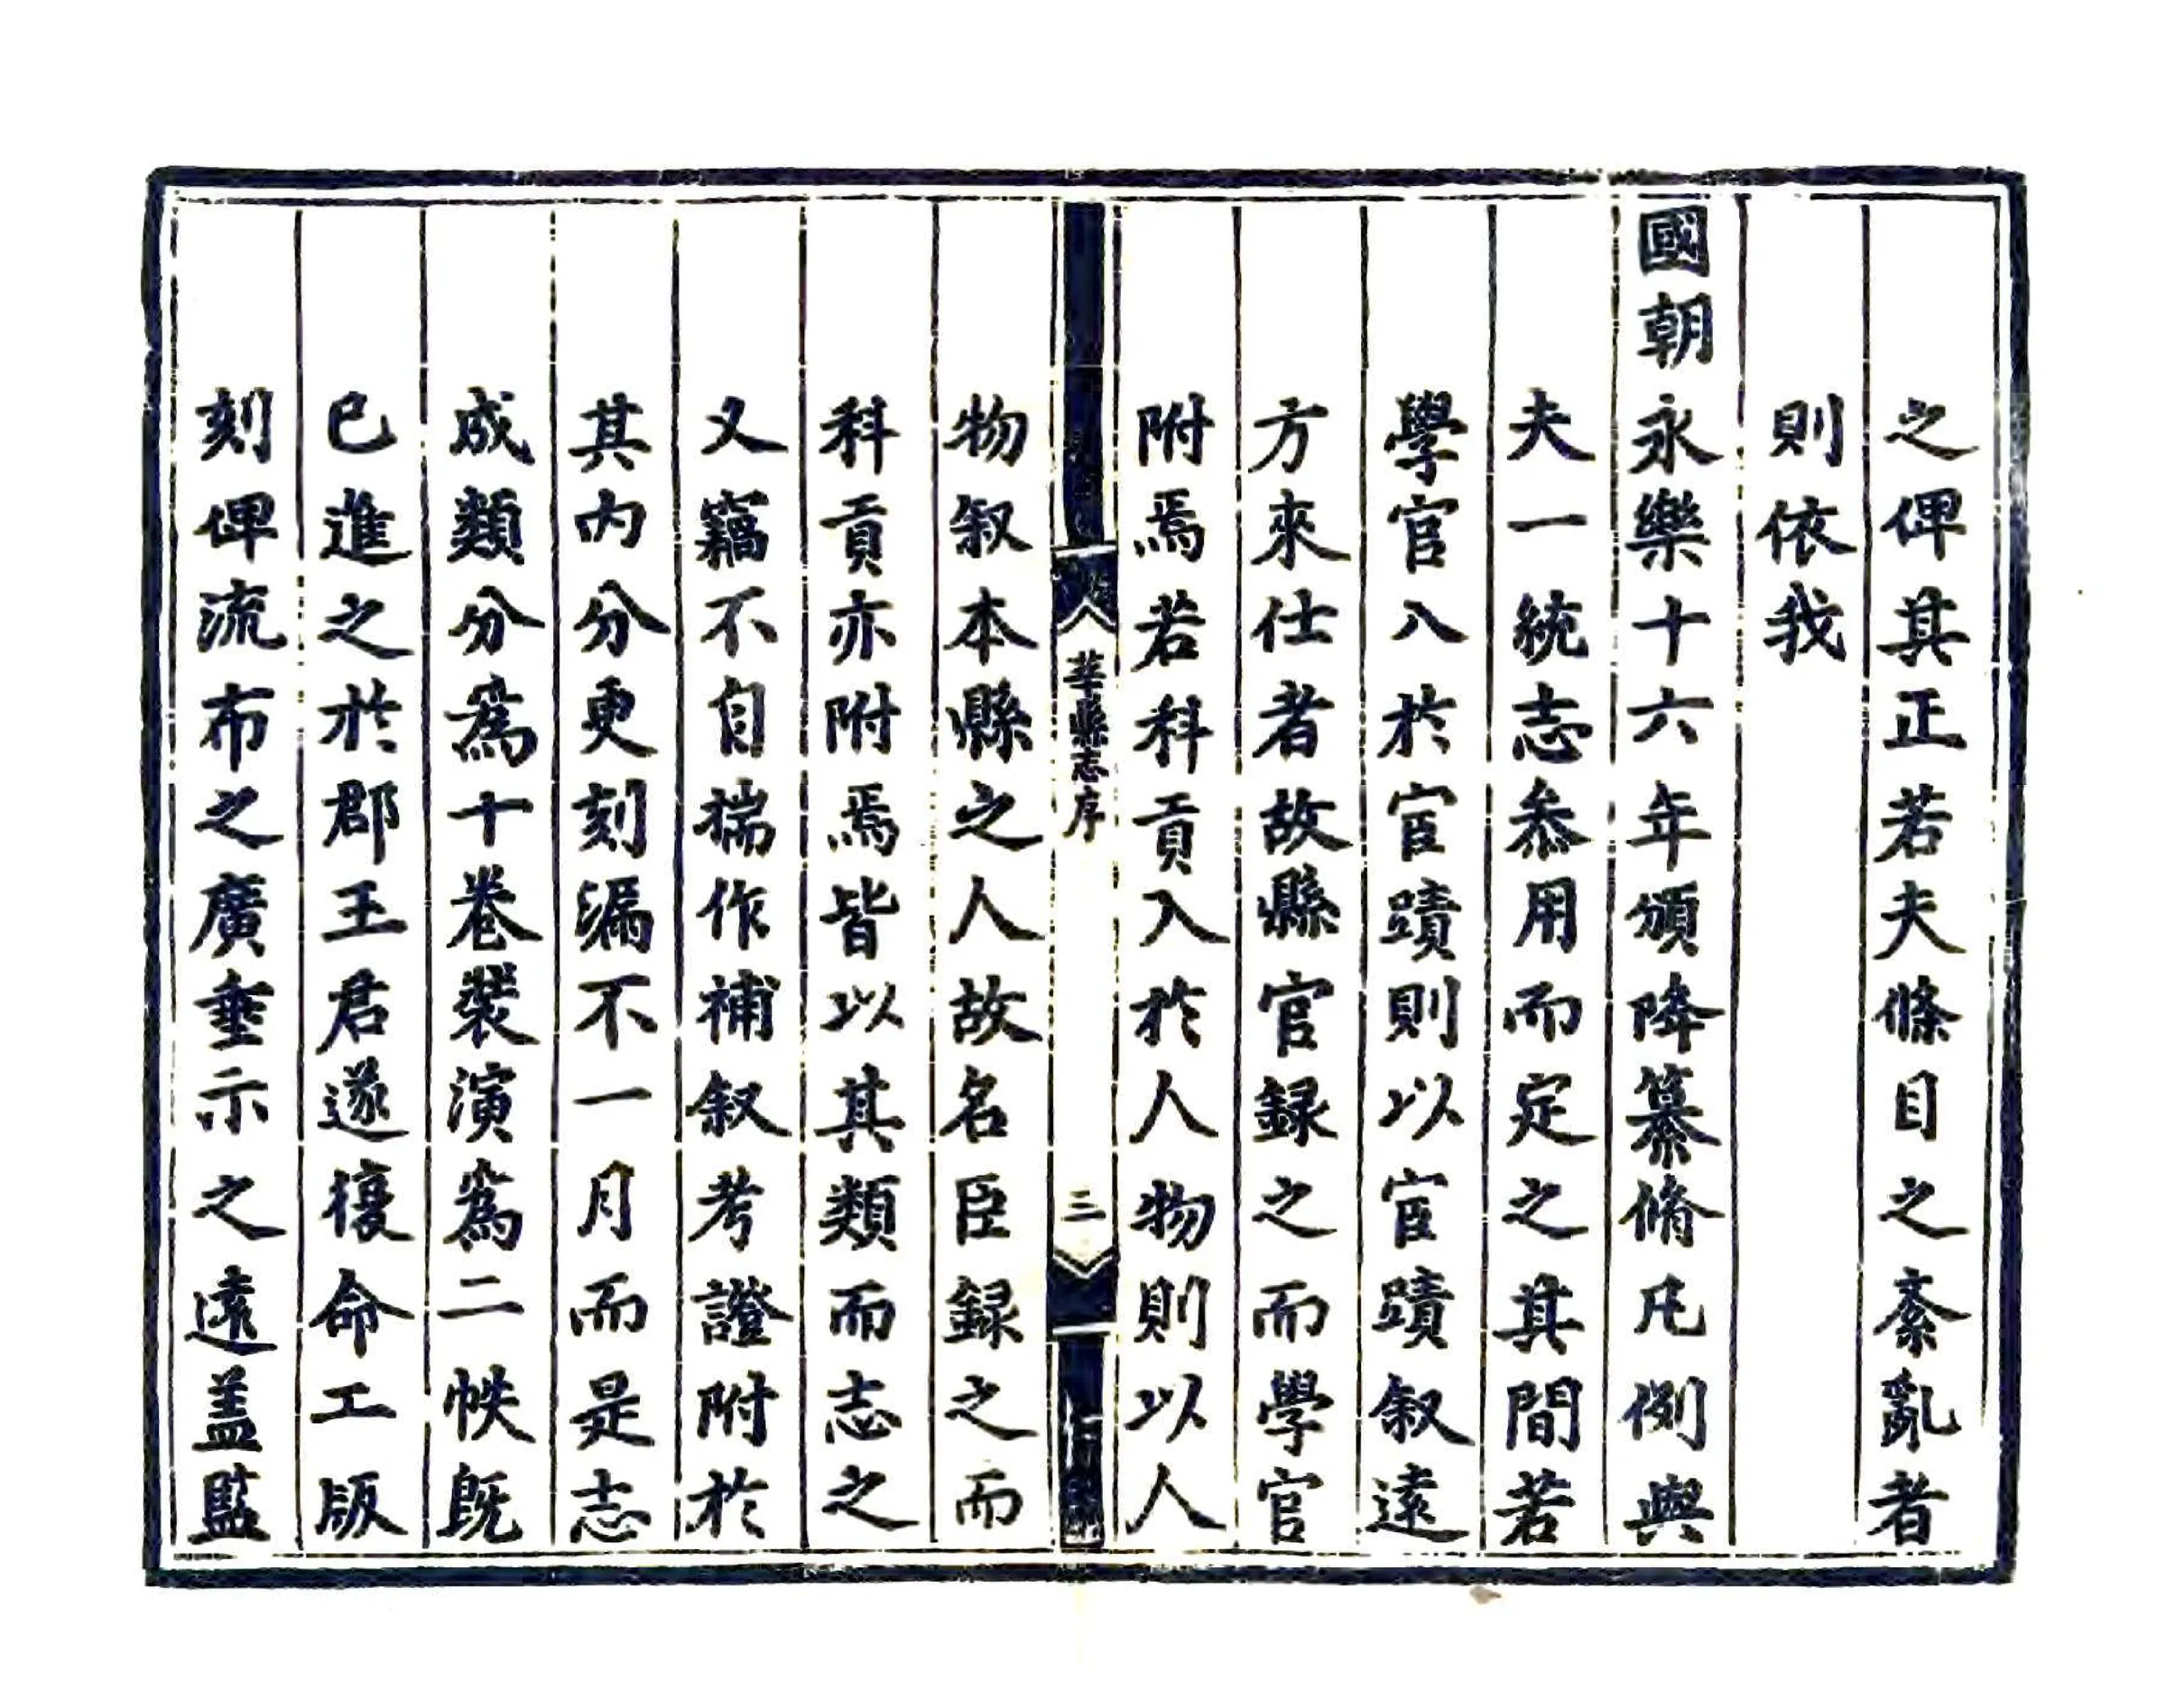 之俾其正若夫條目之紊亂者
則依我
國朝永樂十六年頒降纂脩凡例與
夫一統志叅用而定之其間若
學官入於宦蹟則以宦蹟叙遠
方來仕者故縣官録之而學官
附焉若科貢入於人物則以人
莘縣志序
三
物叙本縣之人故名臣録之而
科貢亦附焉皆以其類而志之
又竊不自揣作補叙考證附於
其内分更刻漏不一月而是志
成類分為十卷裝演為二帙既
巳進之於郡王君遂復命工版
刻俾流布之廣垂示之遠盖監